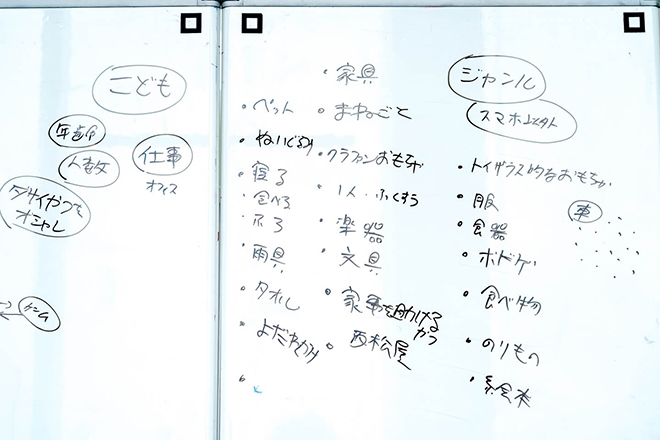 こども
年齢
人数
仕事
オフィス
ダサイかつを
オシャレ
・ペット
・ぬいぐるみ
・寝る
・食べる
・ふろ
・雨具
・タオル
・よだれかけ
・家具
・まねごと
・クラファンおもちゃ
・1人・ふくすう
・楽器
・文具
・家事を助ける
かつ
・西松屋
ジャンル
スマホ以外
・トイザラス的なおもちゃ
・服
・食器
・ボドゲ
・食べ物
・のりもの
・絵本
車